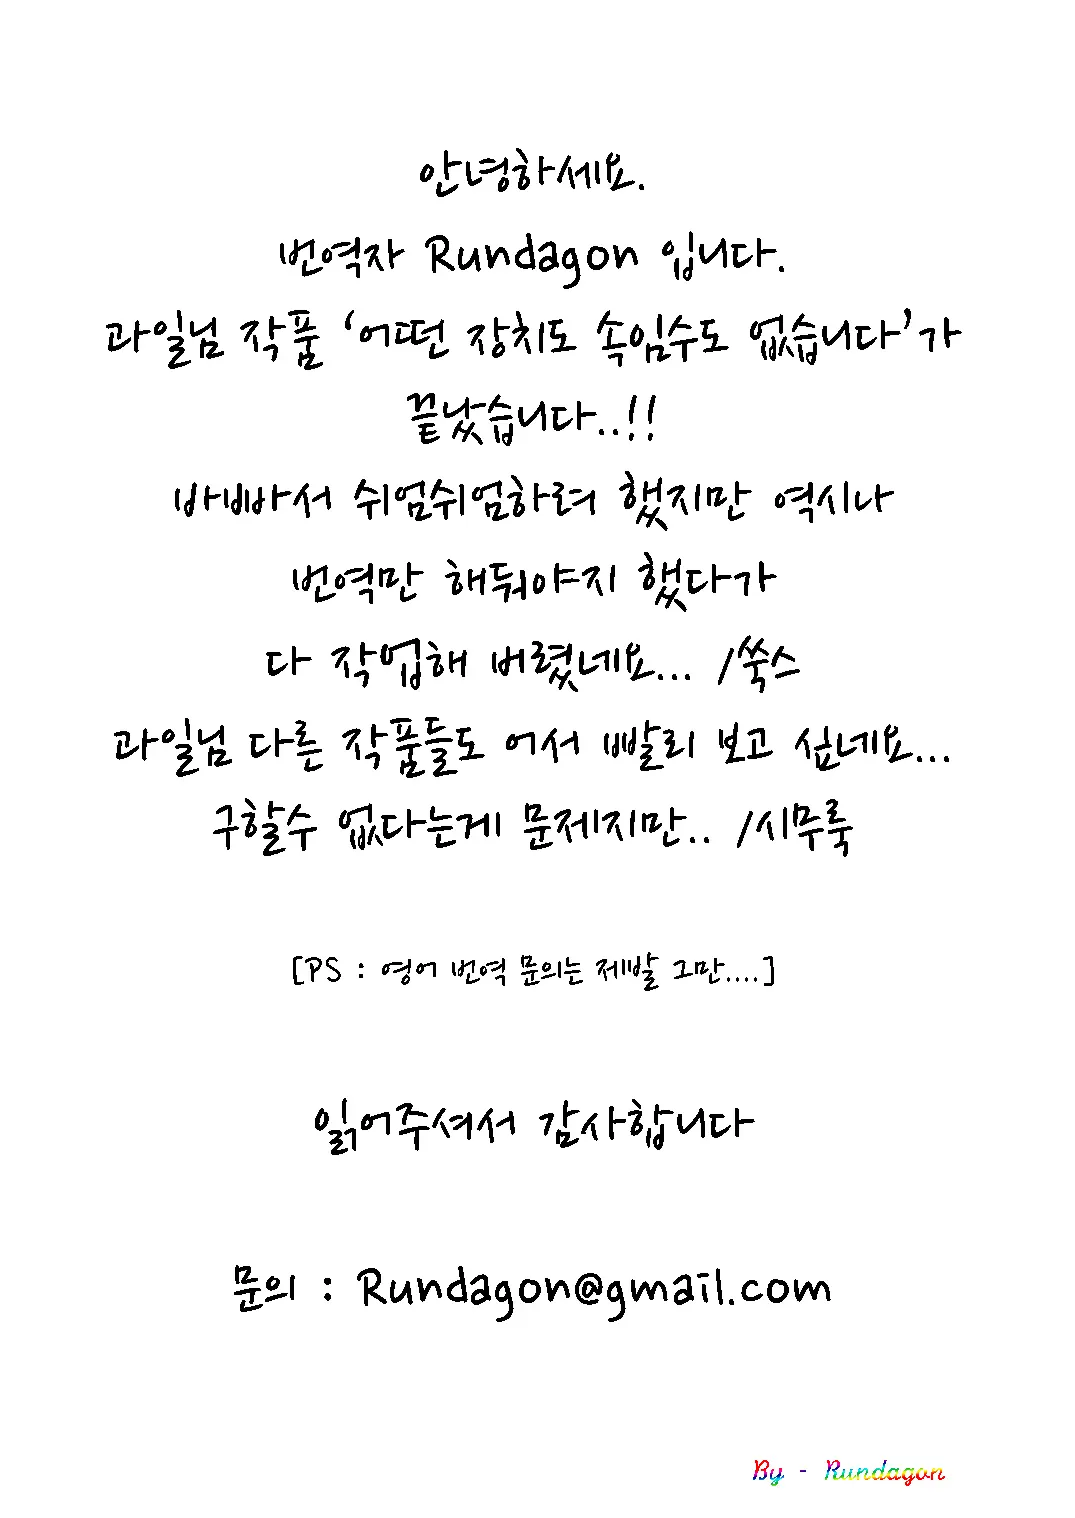 안녕하세요.
번역자 Rundagon 입니다.
과일님 작품 ‘어떤 장치도 속임수도 없습니다’가
끝났습니다..!!
바빠서 쉬엄쉬엄하려 했지만 역시나
번역만 해둬야지 했다가
다 작업해 버렸네요... /쑥스
과일님 다른 작품들도 어서 빨리 보고 싶네요...
구할수 없다는게 문제지만.. /시무룩
[PS : 영어 번역 문의는 제발 그만....]
읽어주셔서 감사합니다
문의 : Rundagon@gmail.com
By - Rundagon